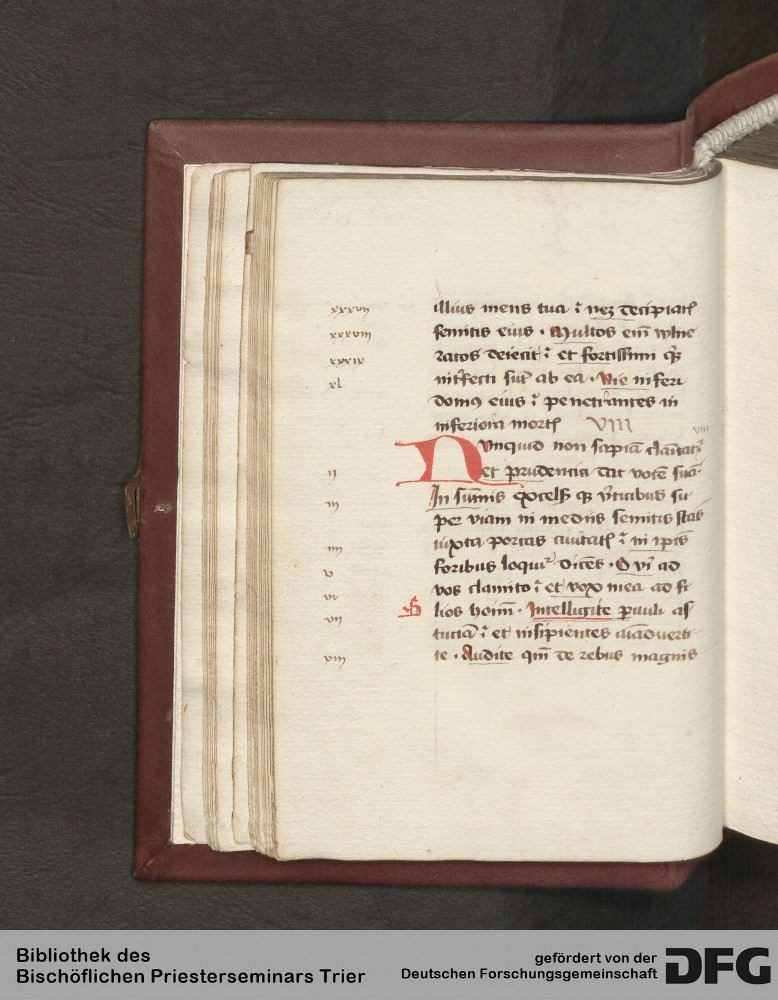 xxxvii
xxxviii
xxxix
xl
illius mens tua : neqꝫ decipiaris
semitis eius . Multos em̄ vulne
ratos deiecit : et fortissimi qꝫ
int̄fecti sūt ab ea . Vie inferi
domꝰ eius : penetrantes in
inferiora mortꝭ VIII
viii
Nunquid non sapiā clāitat :
et prudencia dat vocē suā .
In sūmis excelsꝭ qꝫ v̄ticibus su
per viam in mediis semitis stās
iuxta portas ciuitatꝭ : in ipīs
foribus loquiť dicēs . O vi͛ ad
vos clamito : et vox mea ad fi
lios hoīm . Intelligite ꝑuuli as
tuciā : et insipientes aīaduerti
te . Audite qm̄ de rebus magnis
ii
iii
iiii
v
vi
vii
viii
Bibliothek des
Bischöflichen Priesterseminars Trier
gefördert von der
Deutschen Forschungsgemeinschaft
DFG